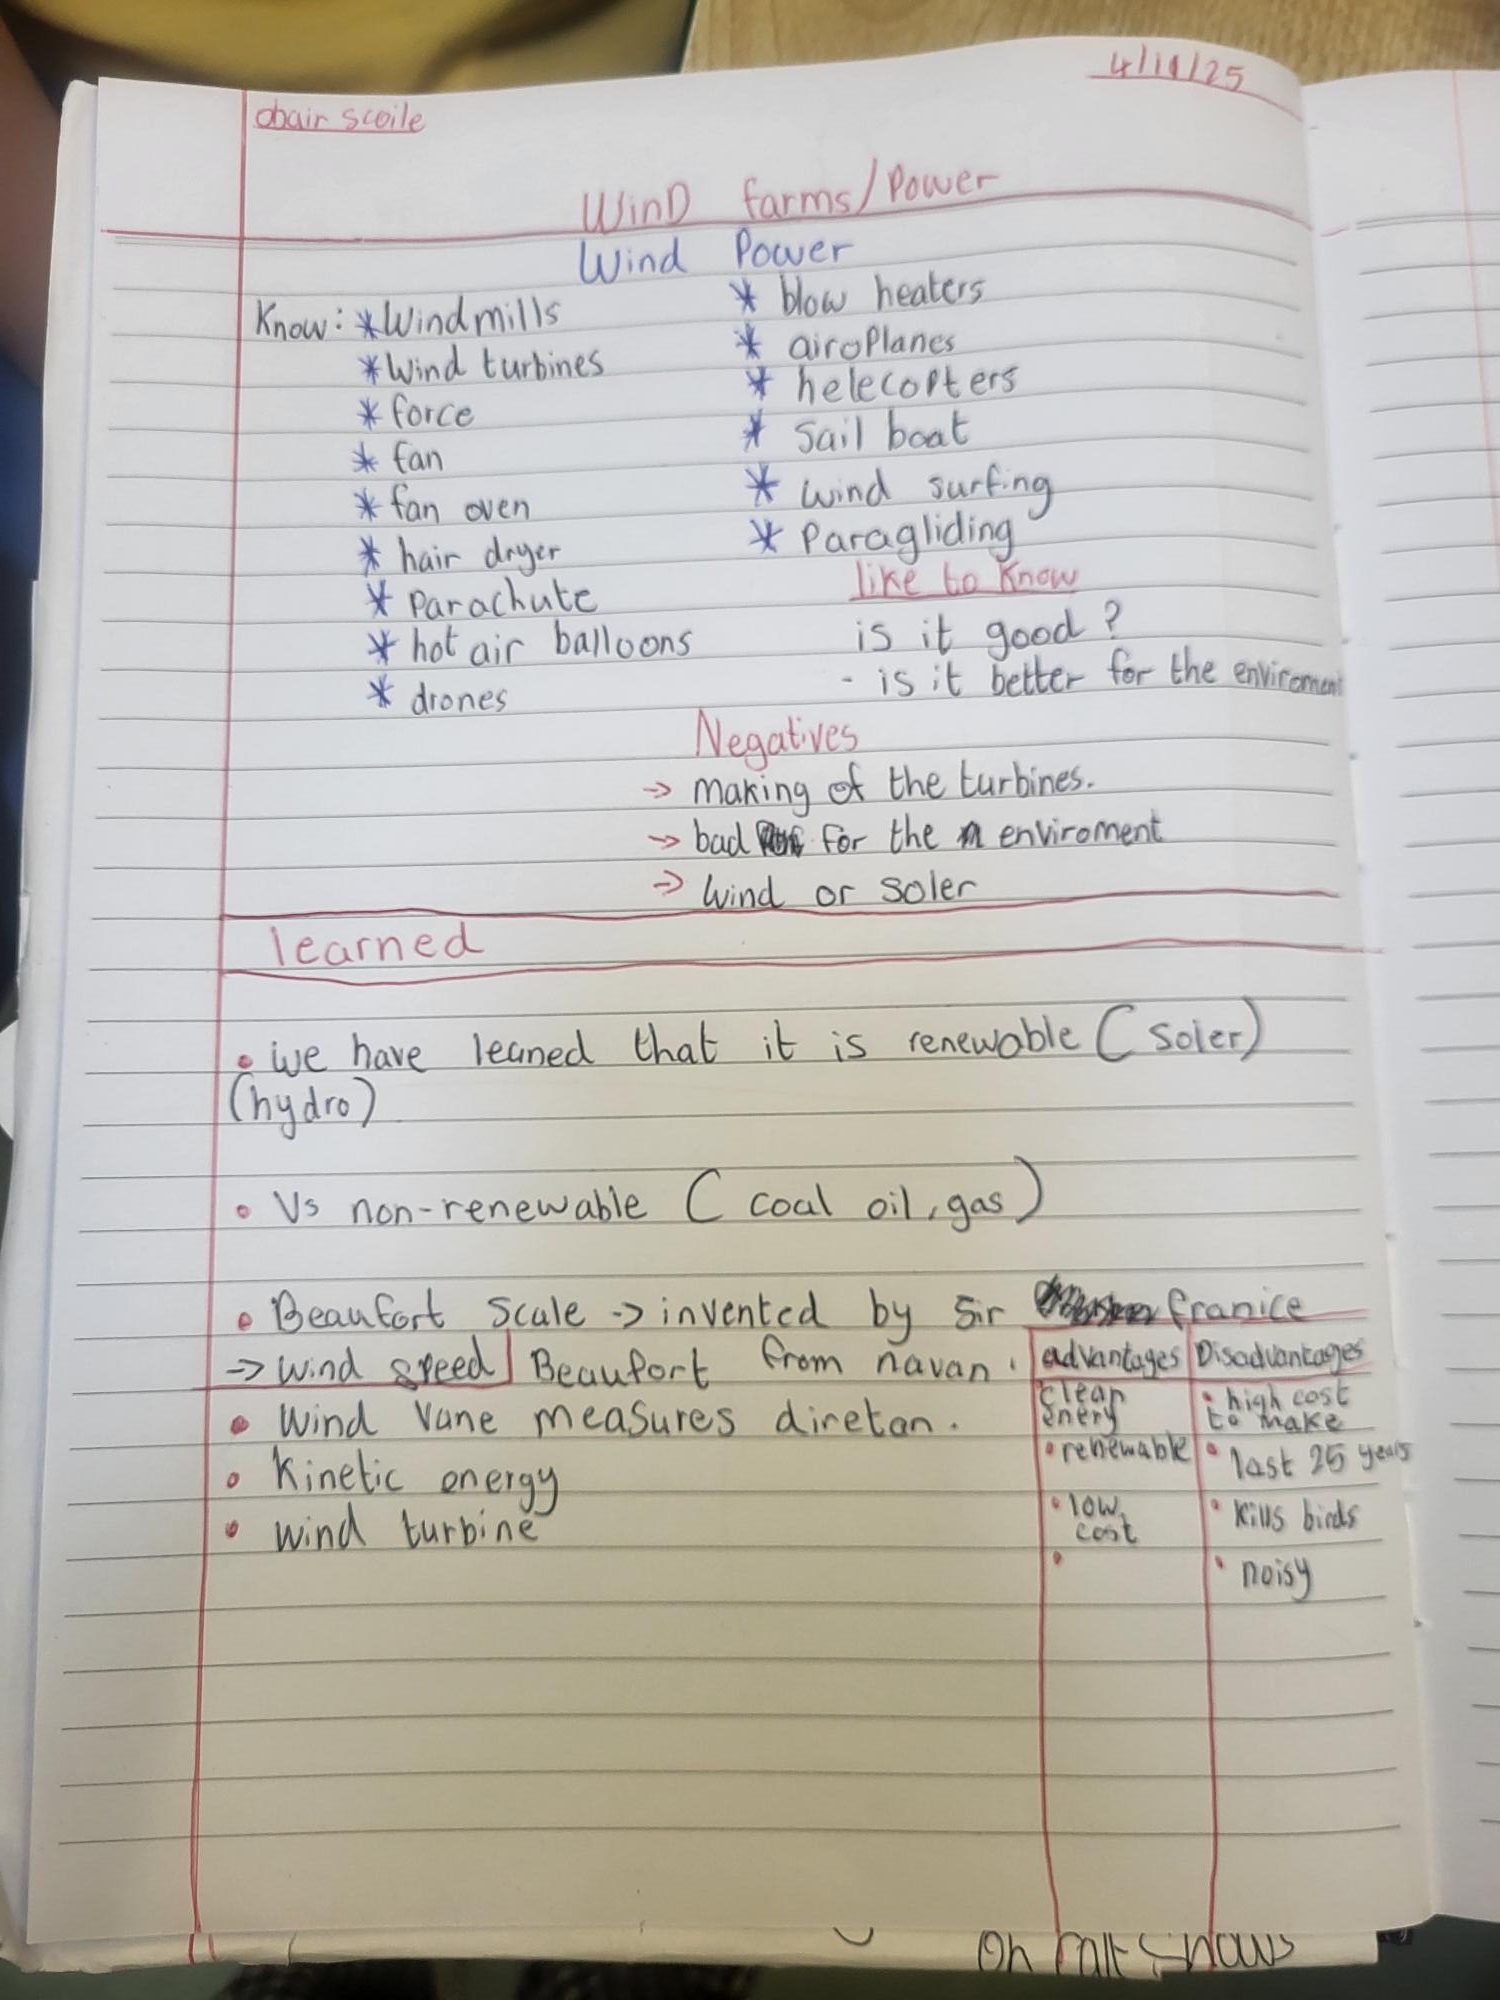 4/11/25
obair scoile
WinD farms/Power
Wind Power
Know: * Windmills
* Wind turbines
* force
* fan
* fan oven
* hair dryer
* Parachute
* hot air balloons
* drones
* blow heaters
* airoPlanes
* helecopters
* Sail boat
* wind surfing
* Paragliding
like to Know
is it good?
- is it better for the enviroment
Negatives
-> making of the turbines.
-> bad for the enviroment
-> Wind or Soler
learned
• we have leaned that it is renewable (Soler)
(hydro)
• Vs non-renewable (coal oil, gas)
• Beaufort Scale -> invented by Sir franice
-> Wind speed | Beaufort from navan.
• Wind Vane measures diretan.
• Kinetic energy
• Wind turbine
advantages
clean
enery
• renewable
• low
cost
•
Disadvantages
• high cost
to make
• last 25 years
• Kills birds
• noisy